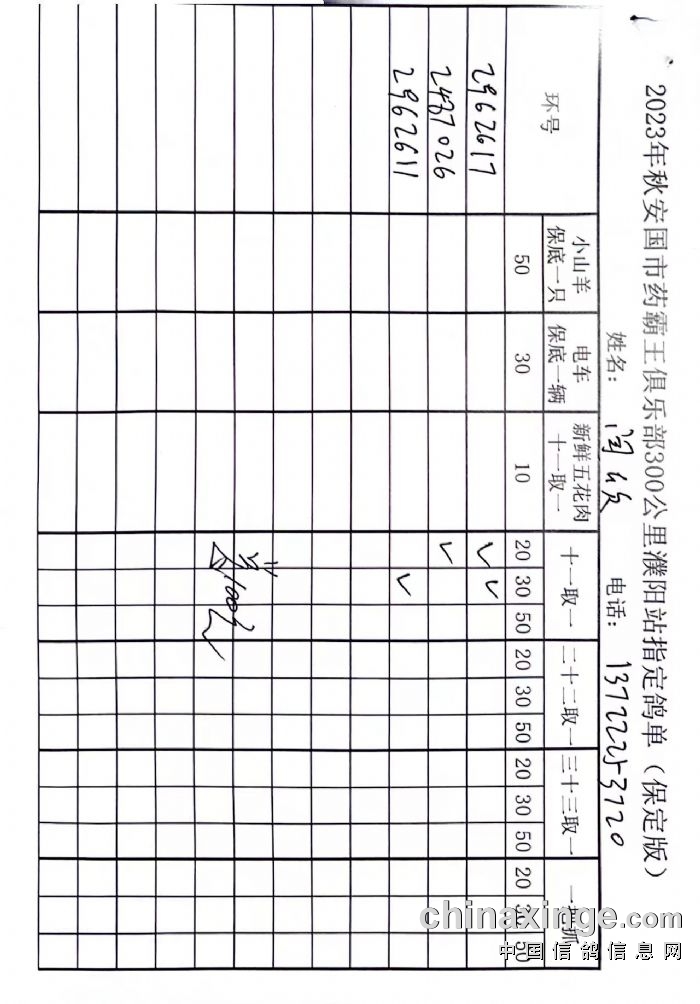 2023年秋安国市药霸王俱乐部300公里濮阳站指定鸽单（保定版）
姓名： 电话： 13722253720
环号 小山羊保底一只 电车保底一辆 新鲜五花肉十一取一 十一取一 二十二取一 三十三取一 一把抓
50 30 10 20 30 50 20 30 50 20 30 50 20 30 50
2962617 ✓ ✓
2487026 ✓
2962611 ✓
chinaxinge.com
中国信鸽信息网